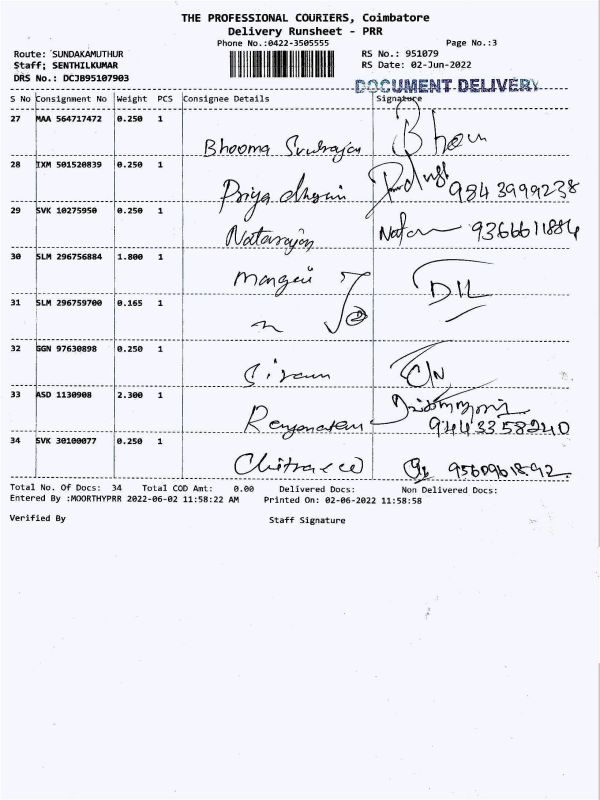 THE PROFESSIONAL COURIERS, Coimbatore
Delivery Runsheet - PRR
Phone No.:0422-3505555
Page No.:3
Route: SUNDAKAMUTHUR
RS No.: 951079
Staff; SENTHILKUMAR
RS Date: 02-Jun-2022
DRS No.: DCJB95107903
DOCUMENT DELIVERY
S No Consignment No Weight PCS Consignee Details Signature
27 MAA 564717472 0.250 1
Bhooma
28 IXM 501520839 0.250 1
Priya 9843999238
29 SVK 10275950 0.250 1
Natarajan 9366611884
30 SLM 296756884 1.800 1
31 SLM 296759700 0.165 1
32 GGN 97630898 0.250 1
33 ASD 1130908 2.300 1
9443358240
34 SVK 30100077 0.250 1
Total No. Of Docs: 34 Total COD Amt: 0.00 Delivered Docs: Non Delivered Docs:
Entered By :MOORTHYPRR 2022-06-02 11:58:22 AM Printed On: 02-06-2022 11:58:58
Verified By Staff Signature